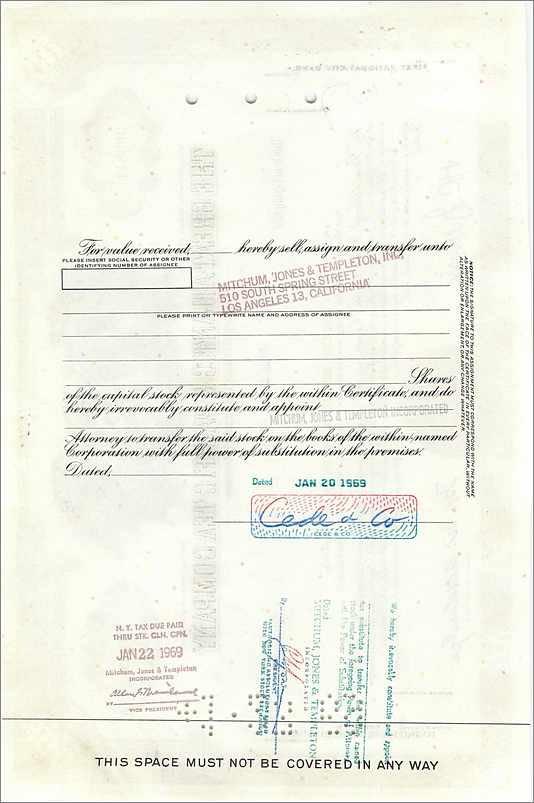 For value received, hereby sell, assign and transfer unto
PLEASE INSERT SOCIAL SECURITY OR OTHER
IDENTIFYING NUMBER OF ASSIGNEE
MITCHUM, JONES & TEMPLETON, INC.
510 SOUTH SPRING STREET
LOS ANGELES 13, CALIFORNIA
PLEASE PRINT OR TYPEWRITE NAME AND ADDRESS OF ASSIGNEE
Shares
of the capital stock represented by the within Certificate, and do
hereby irrevocably constitute and appoint
MITCHUM, JONES & TEMPLETON INCORPORATED
Attorney to transfer the said stock on the books of the within-named
Corporation with full power of substitution in the premises.
Dated,
NOTICE: THE SIGNATURE TO THIS ASSIGNMENT MUST CORRESPOND WITH THE NAME
AS WRITTEN UPON THE FACE OF THE CERTIFICATE IN EVERY PARTICULAR, WITHOUT
ALTERATION OR ENLARGEMENT, OR ANY CHANGE WHATEVER.
Dated JAN 20 1969
Cede & Co
CEDE & CO.
N. Y. TAX DUE PAID
THRU STK. CLR. CPN.
JAN 22 1969
Mitchum, Jones & Templeton
INCORPORATED
BY
VICE PRESIDENT
We hereby irrevocably constitute and appoint
Dated
MITCHUM, JONES & TEMPLETON
INCORPORATED
By
THIS SPACE MUST NOT BE COVERED IN ANY WAY